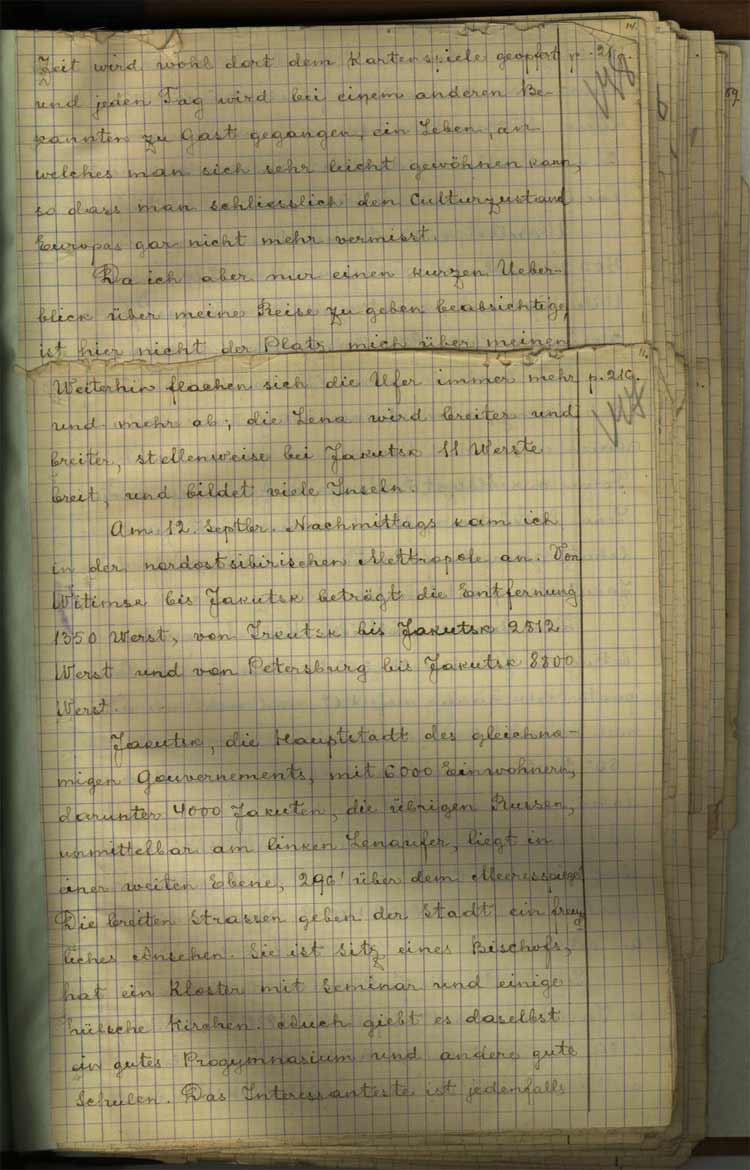 14
Zeit wird wohl dort dem Kartenspiele geopfert p. 21
und jeden Tag wird bei einem anderen Be-
kannten zu Gast gegangen, ein Leben, an
welches man sich sehr leicht gewöhnen kann,
so dass man schliesslich den Culturzustand
Europas gar nicht mehr vermisst.
Da ich aber nur einen kurzen Ueber-
blick über meine Reise zu geben beabsichtige,
ist hier nicht der Platz mich über meinen
Weiterhin flachen sich die Ufer immer mehr p. 210.
und mehr ab; die Lena wird breiter und
breiter, stellenweise bei Jakutsk 11 Werste
breit, und bildet viele Inseln.
Am 12. Septbr. Nachmittags kam ich
in der nordostsibirischen Mettropole an. Von
Witimsk bis Jakutsk beträgt die Entfernung
1350 Werst, von Irkutsk bis Jakutsk 2812
Werst und von Petersburg bis Jakutsk 8800
Werst.
Jakutsk, die Hauptstadt des gleichna-
migen Gouvernements, mit 6000 Einwohnern,
darunter 4000 Jakuten, die übrigen Russen,
unmittelbar am linken Lenaufer, liegt in
einer weiten Ebene, 290' über dem Meeresspiegel
Die breiten Strassen geben der Stadt ein freund
liches Ansehen. Sie ist Sitz eines Bischofs,
hat ein Kloster mit Seminar und einige
hübsche Kirchen. Auch giebt es daselbst
ein gutes Progymnasium und andere gute
Schulen. Das Interessanteste ist jedenfalls